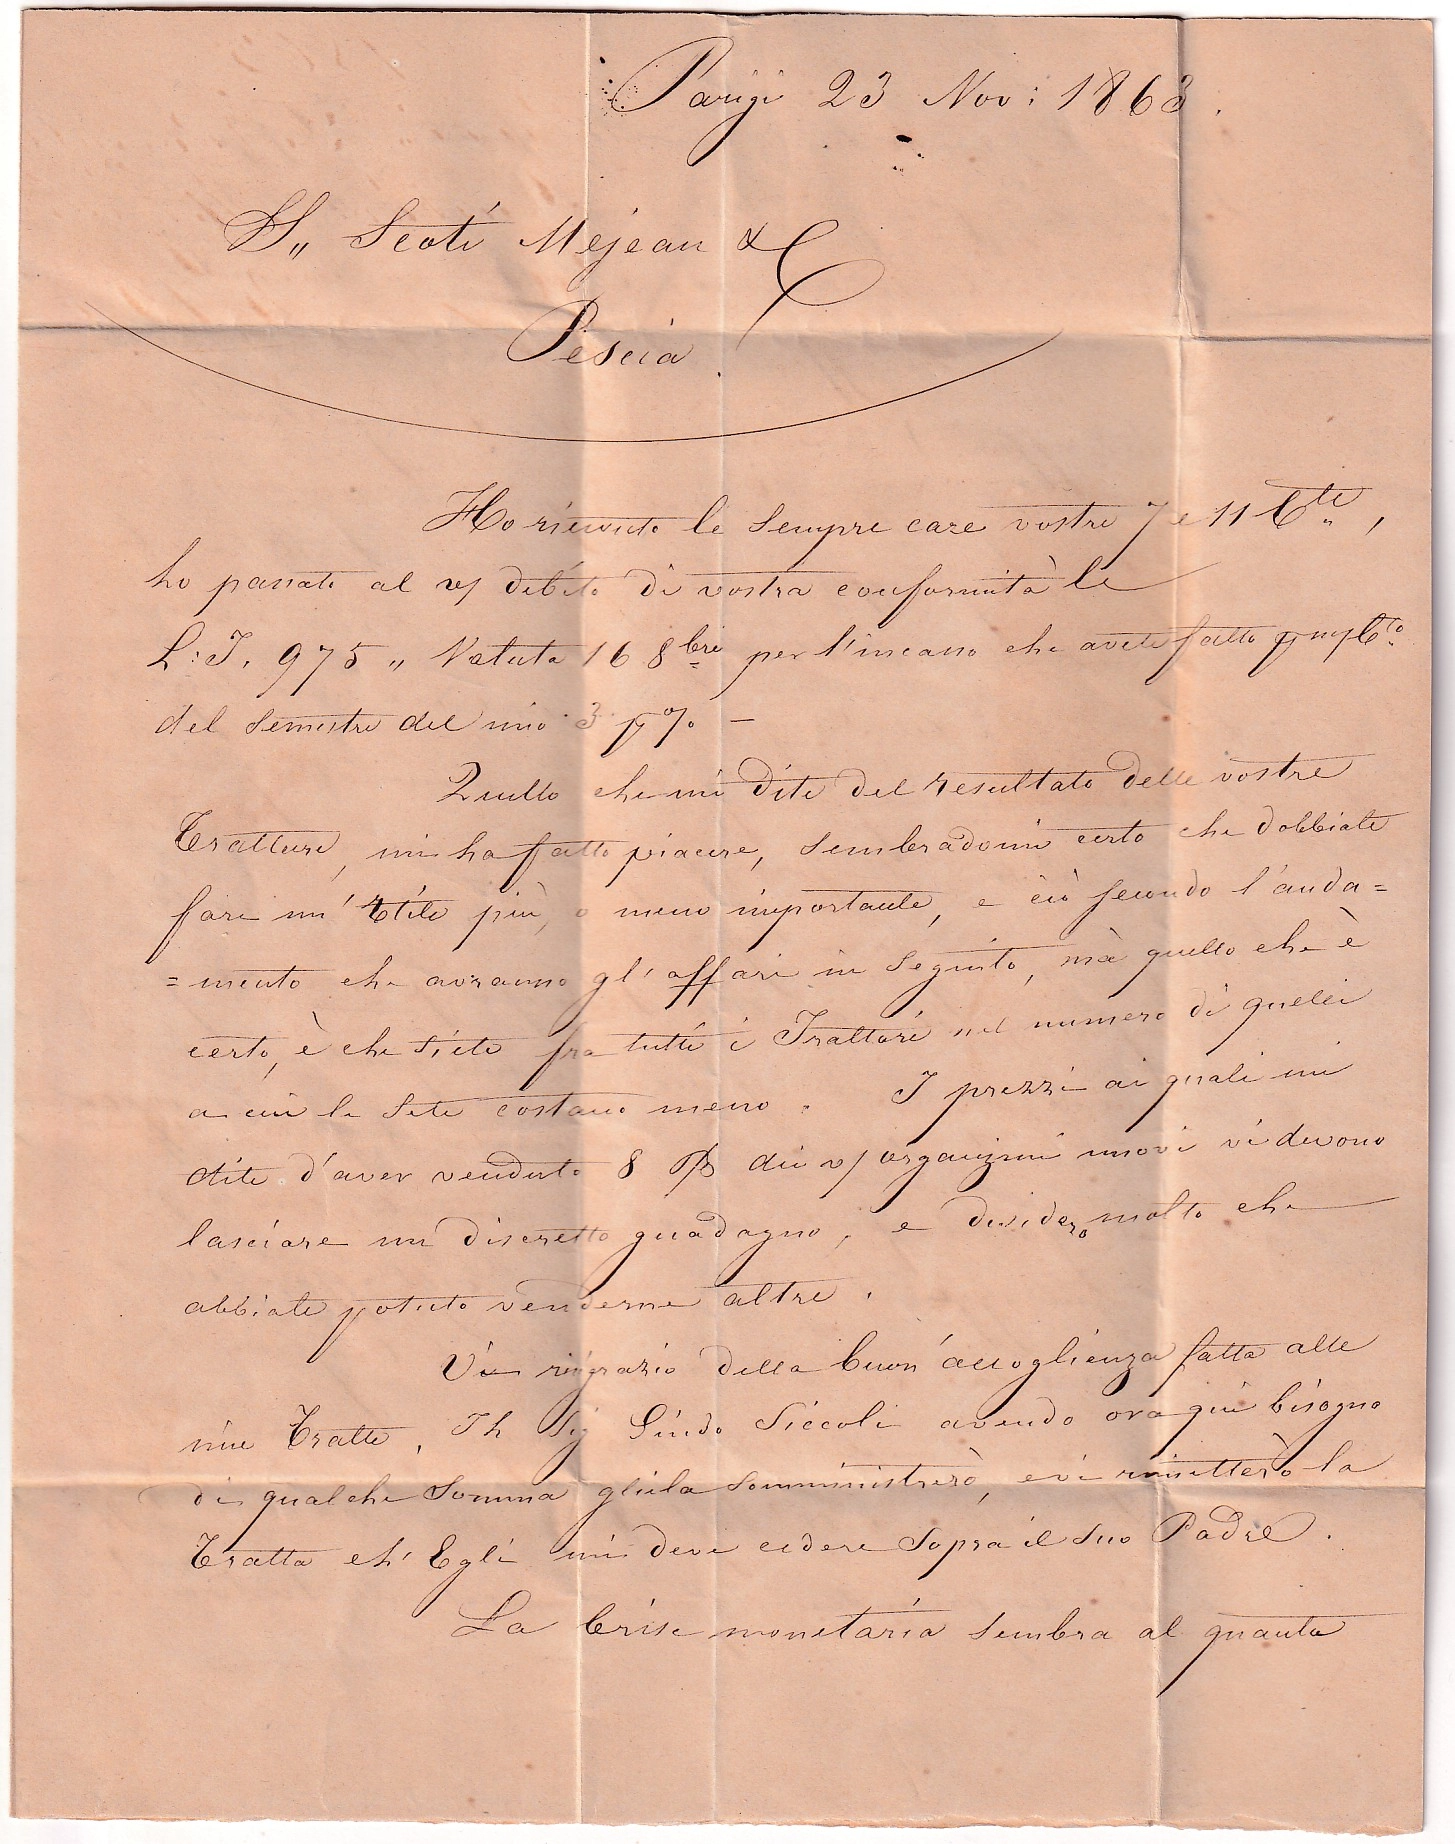 Parigi 23 Nov: 1863.
SS,, Scoti Mejean & C
Pescia
Ho ricevuto le sempre care vostre 7 e 11 Cte,
ho passato al v/ debito di vostra conformità le
L: I. 975 ,, Valuta 16 8bre per l'incasso che avete fatto
del semestre del mio 3 p% —
Quello che mi dite del resultato delle vostre
Tratture, mi ha fatto piacere, sembradomi certo che dobbiate
fare un' Utile più, o meno importante, e ciò secondo l'anda=
=mento che avranno gl' affari in seguito, mà quello che è
certo, è che siete fra tutti i Trattori nel numero di quelli
a cui le Sete costano meno. I prezzi ai quali mi
dite d'aver venduto 8 dei v/ organzini nuovi vi devono
lasciare un discretto guadagno, e desidero molto che
abbiate potuto venderne altre.
Vi ringrazio della buon' accoglienza fatta alle
mie Tratte. Il Sig Guido Siccoli avendo ora quì bisogno
di qualche Somma gliela somministrerò, e vi rimetterò la
Tratta ch' Egli mi deve cedere sopra il suo Padre.
La Crise monetaria sembra al quanto